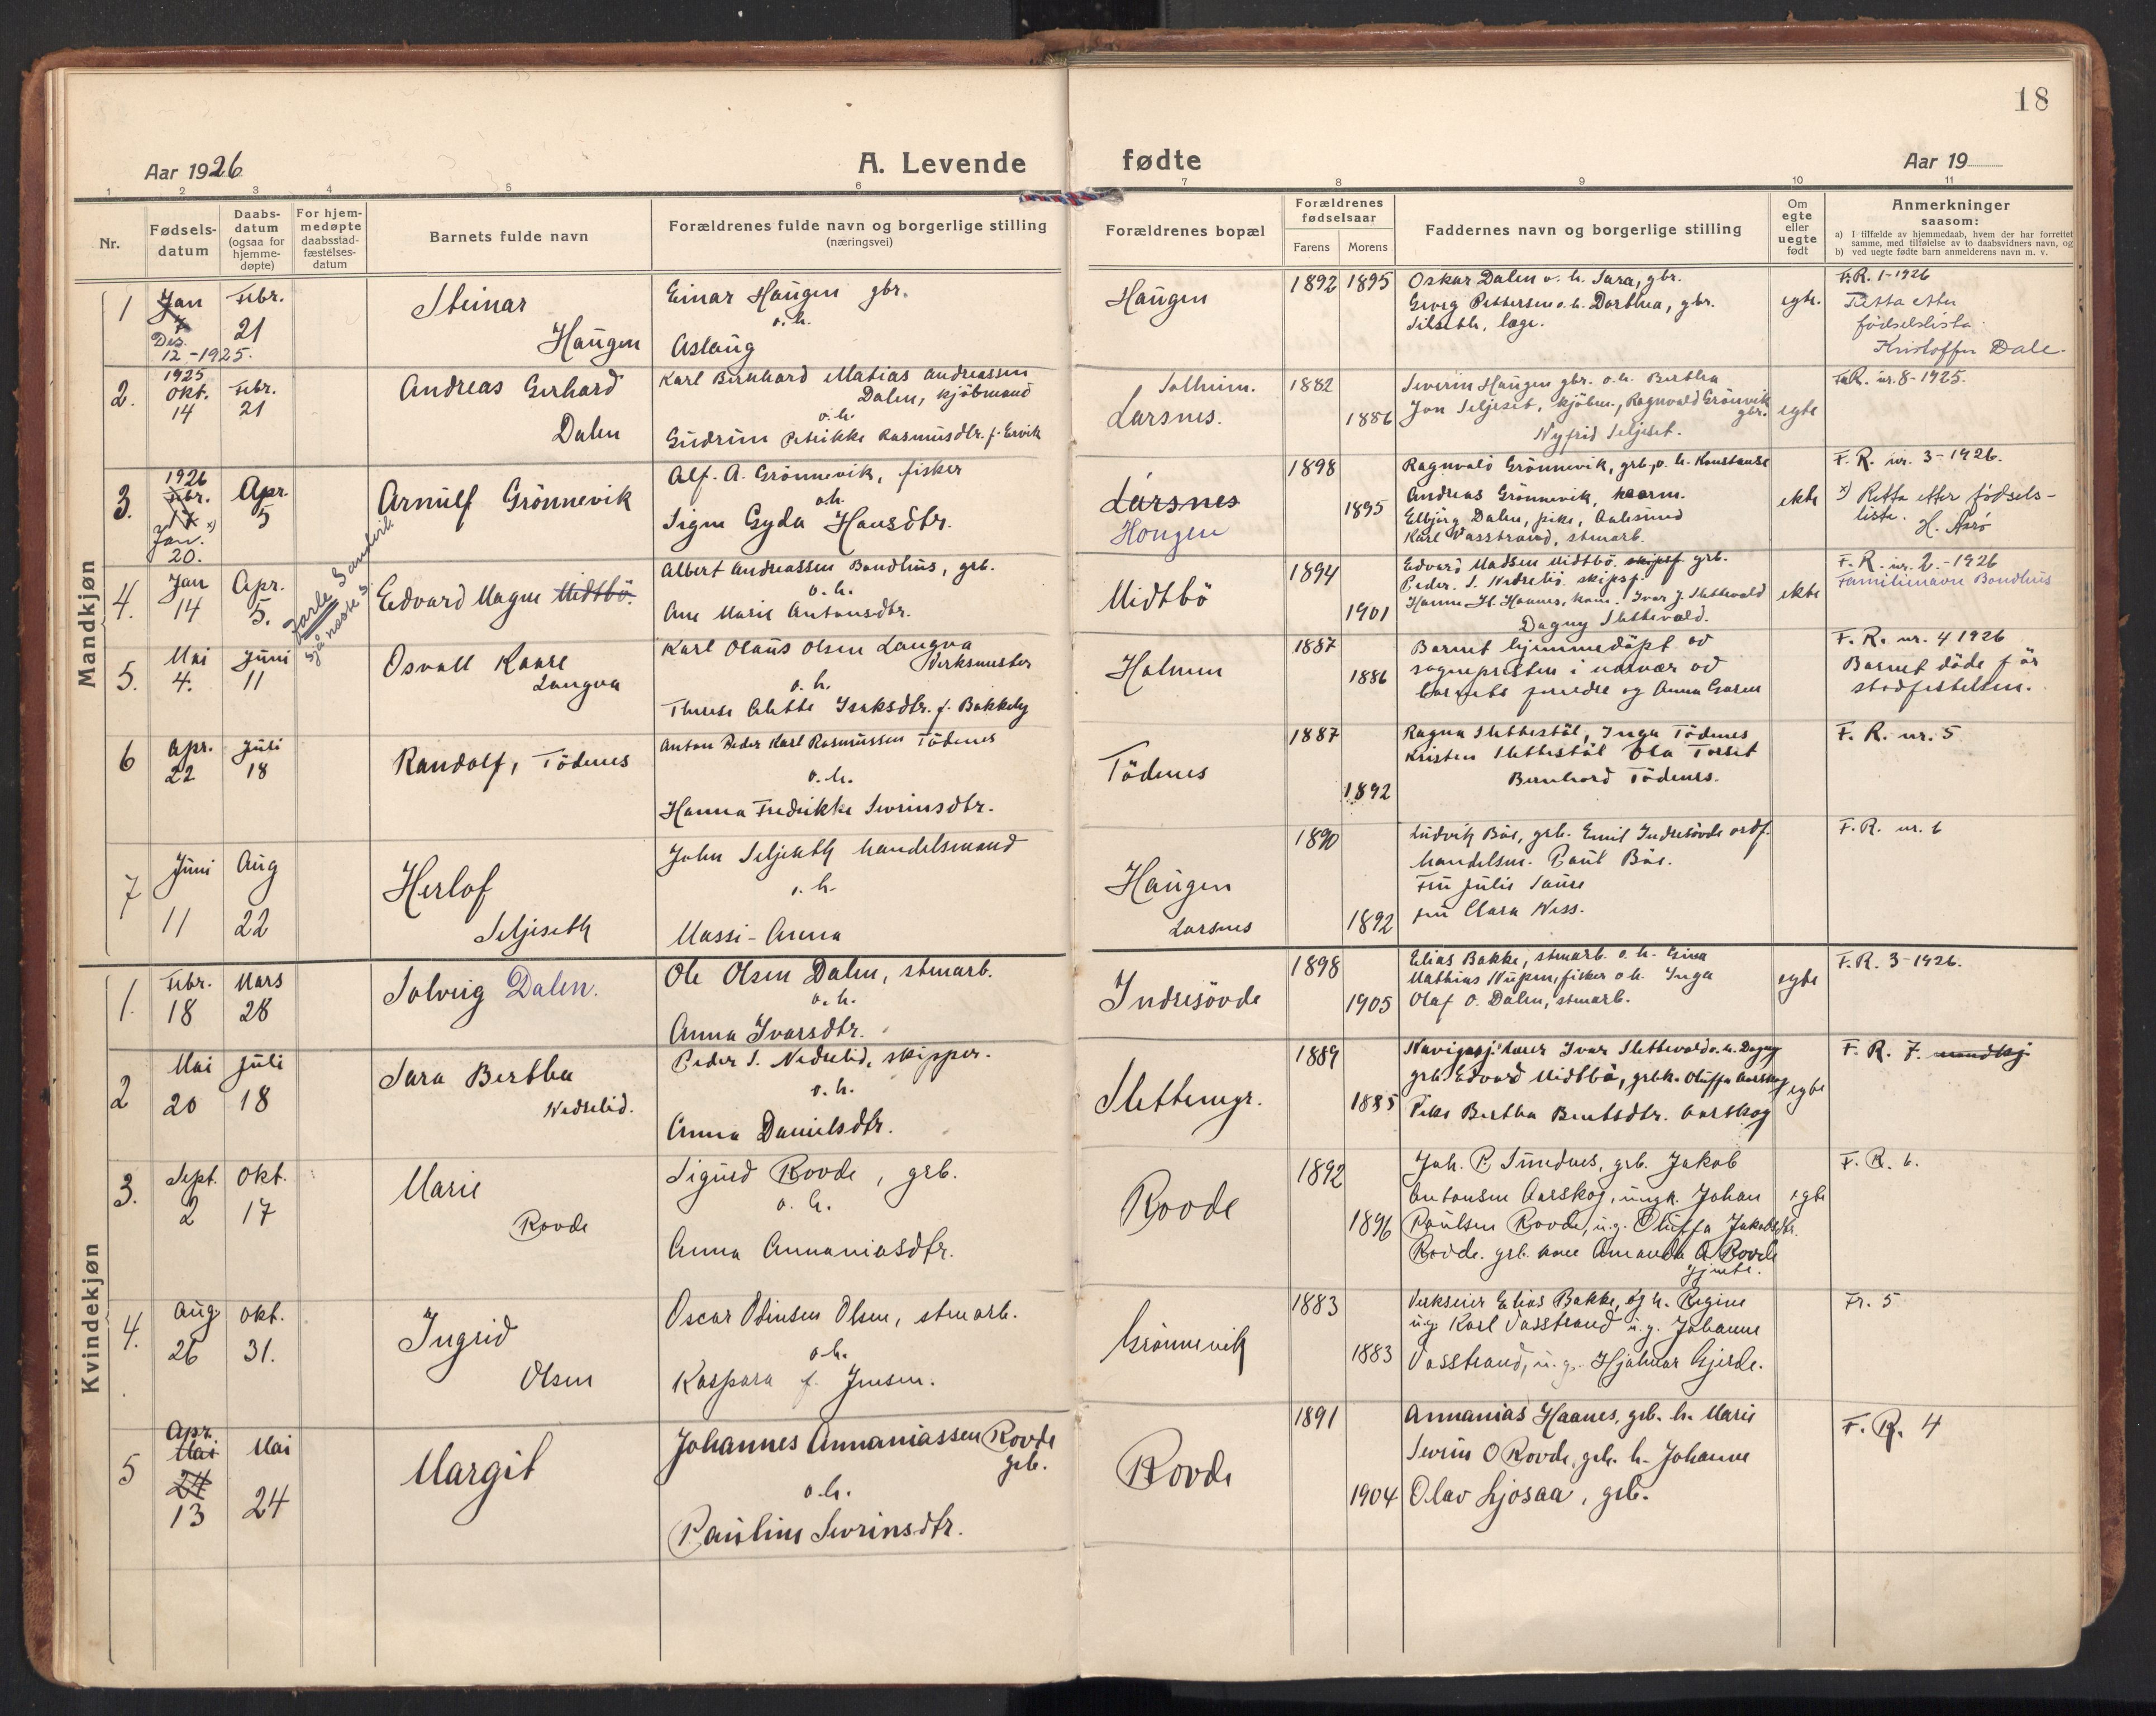 18
Aar 1926
A. Levende fødte
Aar 19
1 2 3 4 5 6 7 8 9 10 11
Nr.
Fødsels-
datum
Daabs-
datum
(ogsaa for
hjemme-
døpte)
For hjem-
medøpte
daabsstad-
fæstelses-
datum
Barnets fulde navn
Forældrenes fulde navn og borgerlige stilling
(næringsvei)
Forældrenes bopæl
Forældrenes
fødselsaar
Farens Morens
Faddernes navn og borgerlige stilling
Om
egte
eller
uegte
født
Anmerkninger
saasom:
a) I tilfælde av hjemmedaab, hvem der har forrettet
samme, med tilføielse av to daabsvidners navn, og
b) ved uegte fødte barn anmelderens navn m. v.
Mandkjøn
1
Jan
7
Des.
12-1925.
Febr.
21
Steinar
Haugen
Einar Haugen gbr.
o. h.
Aslaug
Haugen
1892 1895
Oskar Dalen o. h. Sara, gbr.
Georg Pettersen o. h. Dorthea, gbr.
Silseth, læge.
egte.
F.R. 1-1926
Retta etter
fødselslista.
Kristoffer Dale.
2.
1925
Okt.
14
Febr.
21
Andreas Gerhard
Dalen
Karl Bernhard Matias Andreassen
Dalen, kjöbmand
o. h.
Gudrun Petrikke Rasmusdtr. f. Ervik
Solheim.
Larsnes.
1882
1886
Severin Haugen gbr. o. h. Bertha
Jon Seljeset, kjöbm., Ragnvald Grönnvik
gbr.
Nyfrid Seljeset.
egte
F.R. nr. 8-1925.
3.
1926
Febr.
17 x)
Jan.
20.
Apr.
5
Arnulf Grönnevik
Alf. A. Grönnevik, fisker
o.h.
Signe Gyda Hansdtr.
Larsnes
Hougen
1898
1895
Ragnvald Grönnevik, grb. o. h. Konstanse
Andreas Grönnevik,
Elbjörg Dalen, pike, Aalesund
Karl Vasstrand, stenarb.
ekte
F. R. nr. 3-1926.
x) Retta etter fødsels-
liste.
H. Aarö
4.
Jan
14
Apr.
5.
Jarle Sandvik
sjå neste s.
Edvard Magne Midtbö.
Albert Andreassen Bondhus, grb.
o. h.
Ane Marie Antonsdtr.
Midtbö
1894
1901
Edvard Madsen Midtbö. skipsf. grb.
Peder. S. Nedrelid. skipsf.
Hanna H. Haanes, kone. Ivar J. Slettevald
Dagny Slettevald.
ekte
F. R. nr. 2.-1926
Familienavn Bondhus
5.
Mai
4.
Juni
11
Osvall Kaare
Langva
Karl Olaus Olsen Langva
Verksmester
o. h.
Therese Alette Isaksdtr. f. Bakkely
Holmen
1887
1886
Barnet hjemmedöpt av
sognepresten i nærvær av
barnets foreldre og Anna Garen
F. R. nr. 4 1926
Barnet döde för
stadfestelsen.
6
Apr.
22
Juli
18
Randolf, Tödenes
Anton Peder Karl Rasmussen Tödenes
o. h.
Hanna Fredrikke Sevrinsdtr.
Tödenes
1887
1892
Ragna Slettestöl, Inga Tödenes
Kristen Slettestöl Ola Torset
Bernhard Tödenes.
F. R. nr. 5
7
Juni
11
Aug
22
Herlof
Seljeseth
John Seljeseth handelsmand
o. h.
Massi-Anna
Haugen
Larsnes
1890
1892
Ludvik Böe, grb. Emil Indresövde ordf.
handelsm. Paul Böe.
Fru Julie Saure
fru Clara Ness.
F.R. nr. 6
Kvindekjøn
1.
Febr.
18
Mars
28
Solveig Dalen.
Ole Olsen Dalen, stenarb.
o. h.
Anna Ivarsdtr.
Indresövde
1898
1905
Elias Bakke, stenarb. o. h. Gina
Mathias Nupen, fisker o h. Inga
Olaf O. Dalen, stenarb.
egte
F.R. 3-1926.
2
Mai
20
Juli
18
Sara Bertha
Nedrelid.
Peder S. Nedrelid, skipper.
o. h.
Anna Danielsdtr.
Slettemyr.
1889
1885
Navigasj. lærer Ivar Slettevald o. h. Dagny
grb. Edvard Midtbö, grbk. Oluffa Aarskog
Pike Bertha Berntsdtr. Aarskog
egte
F. R. 7. mandkj.
3.
Sept.
2
Okt.
17
Marie
Rovde
Sigurd Rovde, grb.
o. h.
Anna Annaniasdtr.
Rovde
1892
1896
Joh. P. Sundnes, grb. Jakob
Antonsen Aarskog, ungk. Johan
Paulsen Rovde, u.g. Oluffa Jakobsdtr.
Rovde. grb. kone Amanda A Rovde
gjente.
egte
F. R. 6.
4.
Aug
26
Okt.
31.
Ingrid
Olsen
Oscar Odinsen Olsen, stenarb.
o h.
Kaspara f. Jensen.
Grönnevik
1883
1883
Verkseier Elias Bakke, og h. Regine
u.g. Karl Vasstrand u. g. Johanne
Vasstrand, u. g. Hjalmar Gjerde.
Fr. 5
5
Apr.
Mai
24
13
Mai
24
Margit
Johannes Annaniassen Rovde
grb.
o. h.
Pauline Sevrinsdtr.
Rovde
1891
1904
Annanias Haanes, grb. h. Marie
Sevrin O Rovde, grb. h. Johanne
Olav Ljosaa, grb.
F. R. 4